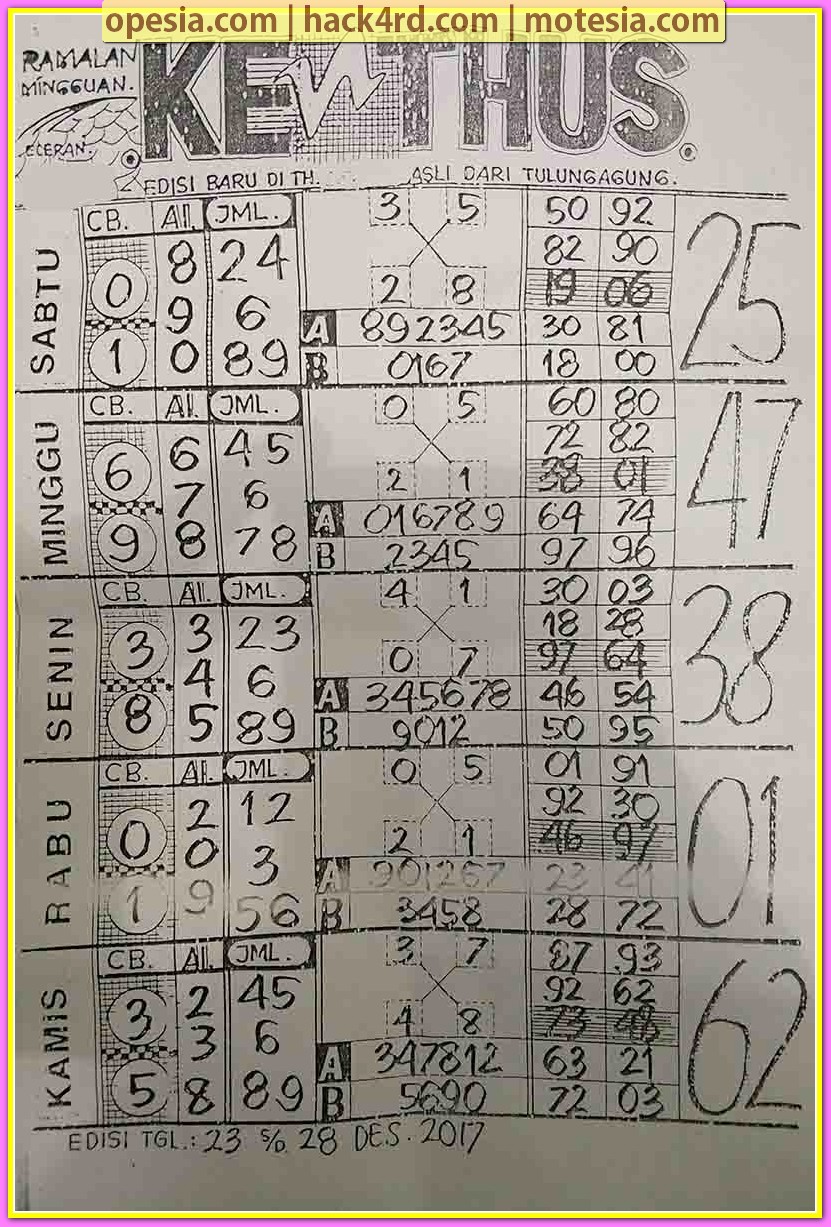 opesia.com | hack4rd.com | motesia.com
RAMALAN
MINGGUAN.
ECERAN.
KENTHUS.
EDISI BARU DI TH. ASLI DARI TULUNGAGUNG.
SABTU
CB. AI. JML.
0 8 24
9 6
1 0 89
3 5
2 8
A 892345
B 0167
50 92
82 90
19 06
30 81
18 00
25
MINGGU
CB. AI. JML.
6 6 45
7 6
9 8 78
0 5
2 1
A 016789
B 2345
60 80
72 82
38 01
64 74
97 96
47
SENIN
CB. AI. JML.
3 3 23
4 6
8 5 89
4 1
0 7
A 345678
B 9012
30 03
18 28
97 64
46 54
50 95
38
RABU
CB. AI. JML.
0 2 12
0 3
1 9 56
0 5
2 1
A 901267
B 3458
01 91
92 30
46 97
23 41
28 72
01
KAMIS
CB. AI. JML.
3 2 45
3 6
5 8 89
3 7
4 8
A 347812
B 5690
87 93
92 62
73 48
63 21
72 03
62
EDISI TGL.: 23 s/d 28 DES. 2017